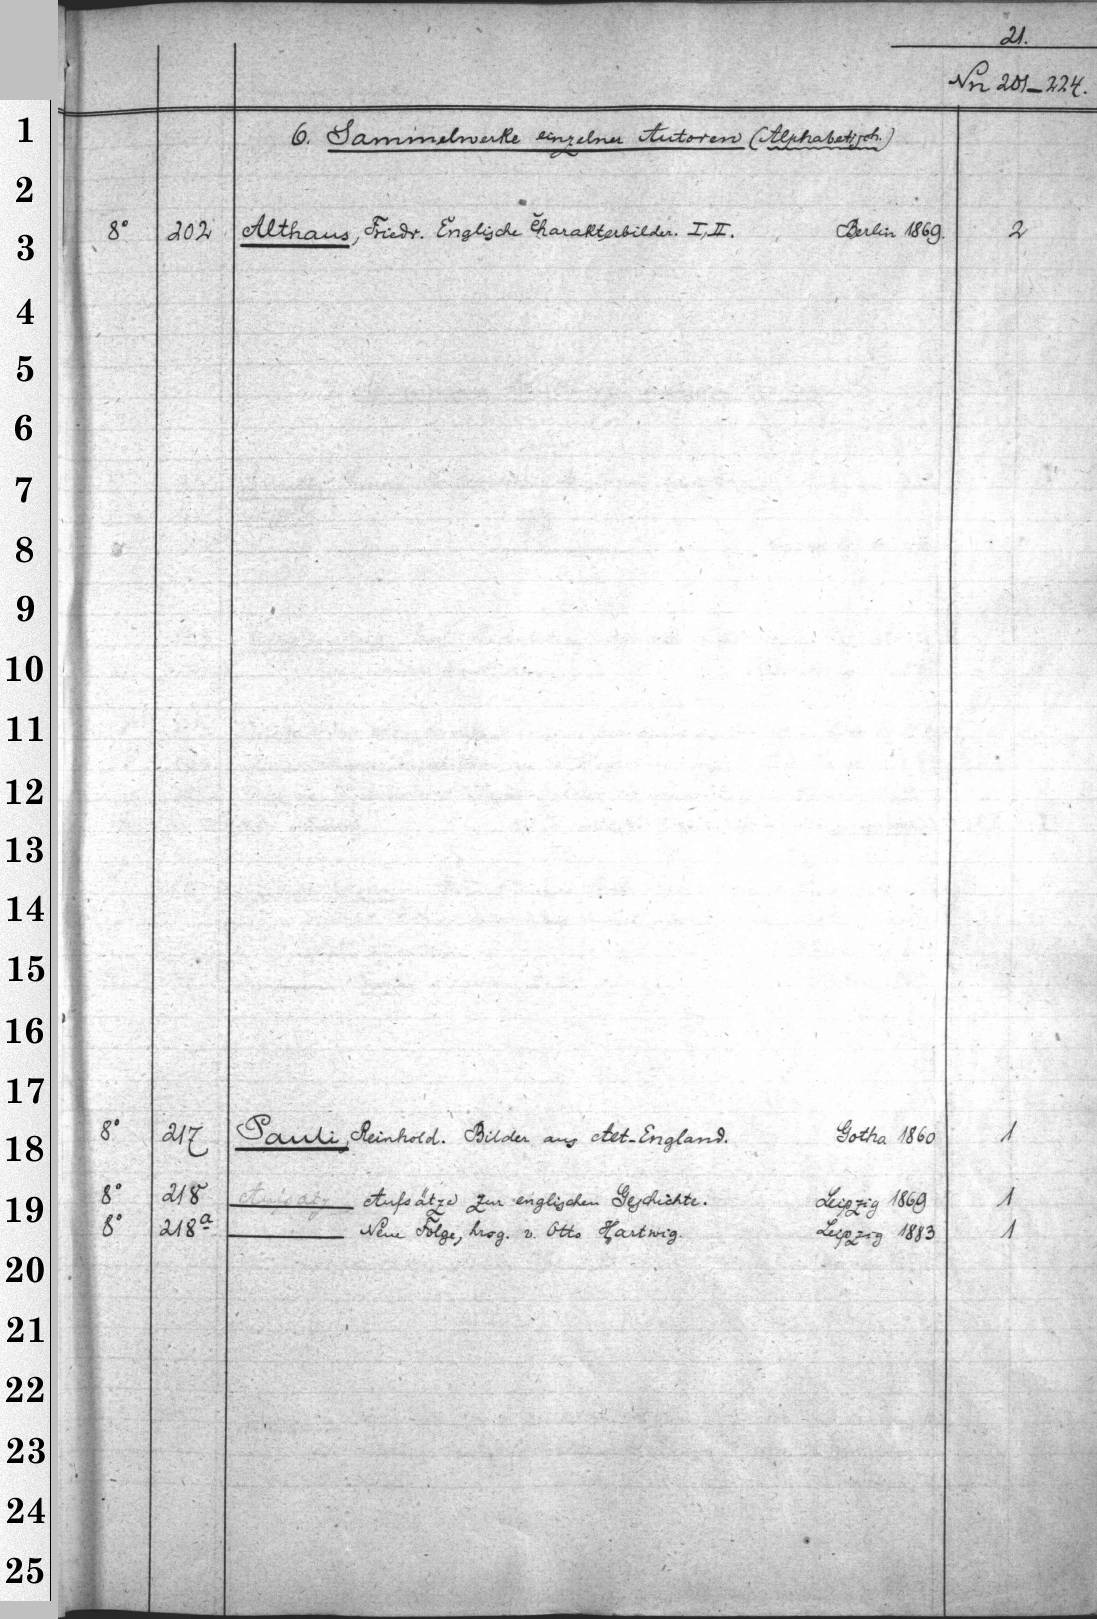 21.
Nn 201-224.
1
6. Sammelwerke einzelner Autoren (Alphabetisch.)
2
3 8° 202 Althaus, Friedr. Englische Charakterbilder. I, II. Berlin 1869. 2
4
5
6
7
8
9
10
11
12
13
14
15
16
17
18 8° 217 Pauli, Reinhold. Bilder aus Alt-England. Gotha 1860 1
19 8° 218 Aufsätze zur englischen Geschichte. Leipzig 1869 1
8° 218a Neue Folge, hrsg. v. Otto Hartwig. Leipzig 1883 1
20
21
22
23
24
25